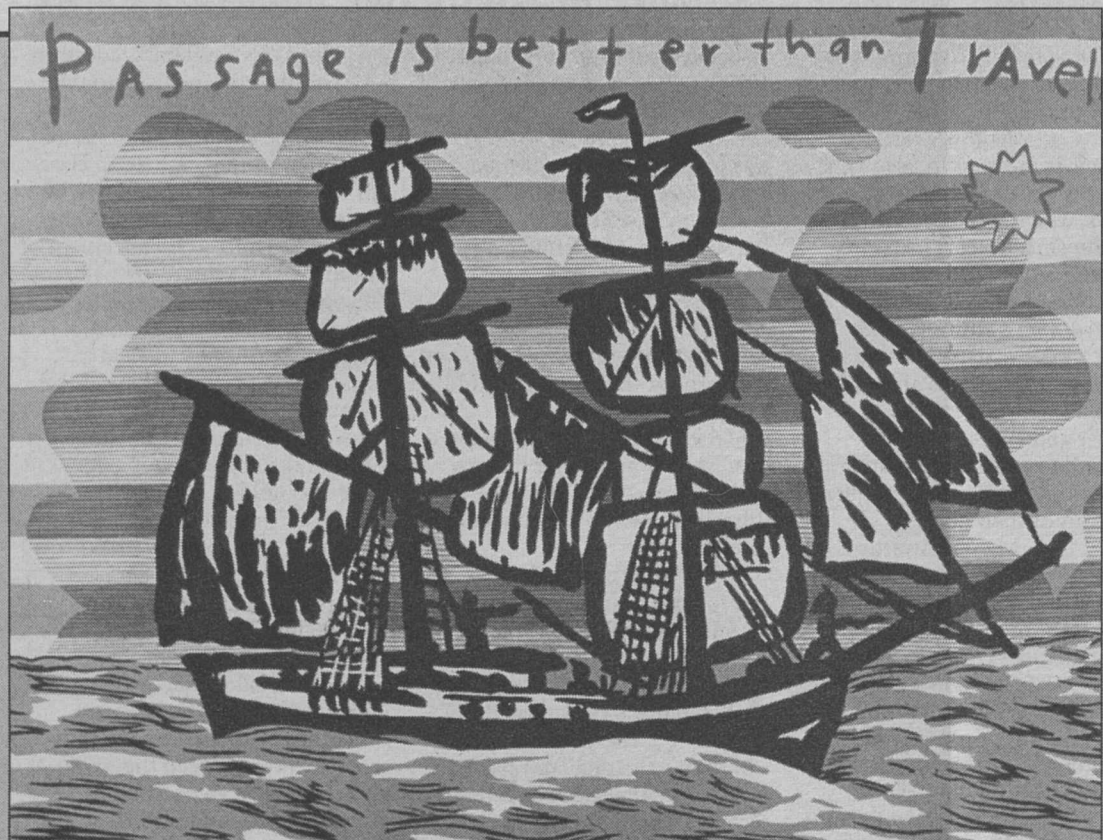 PAssAge is better than TrAvel